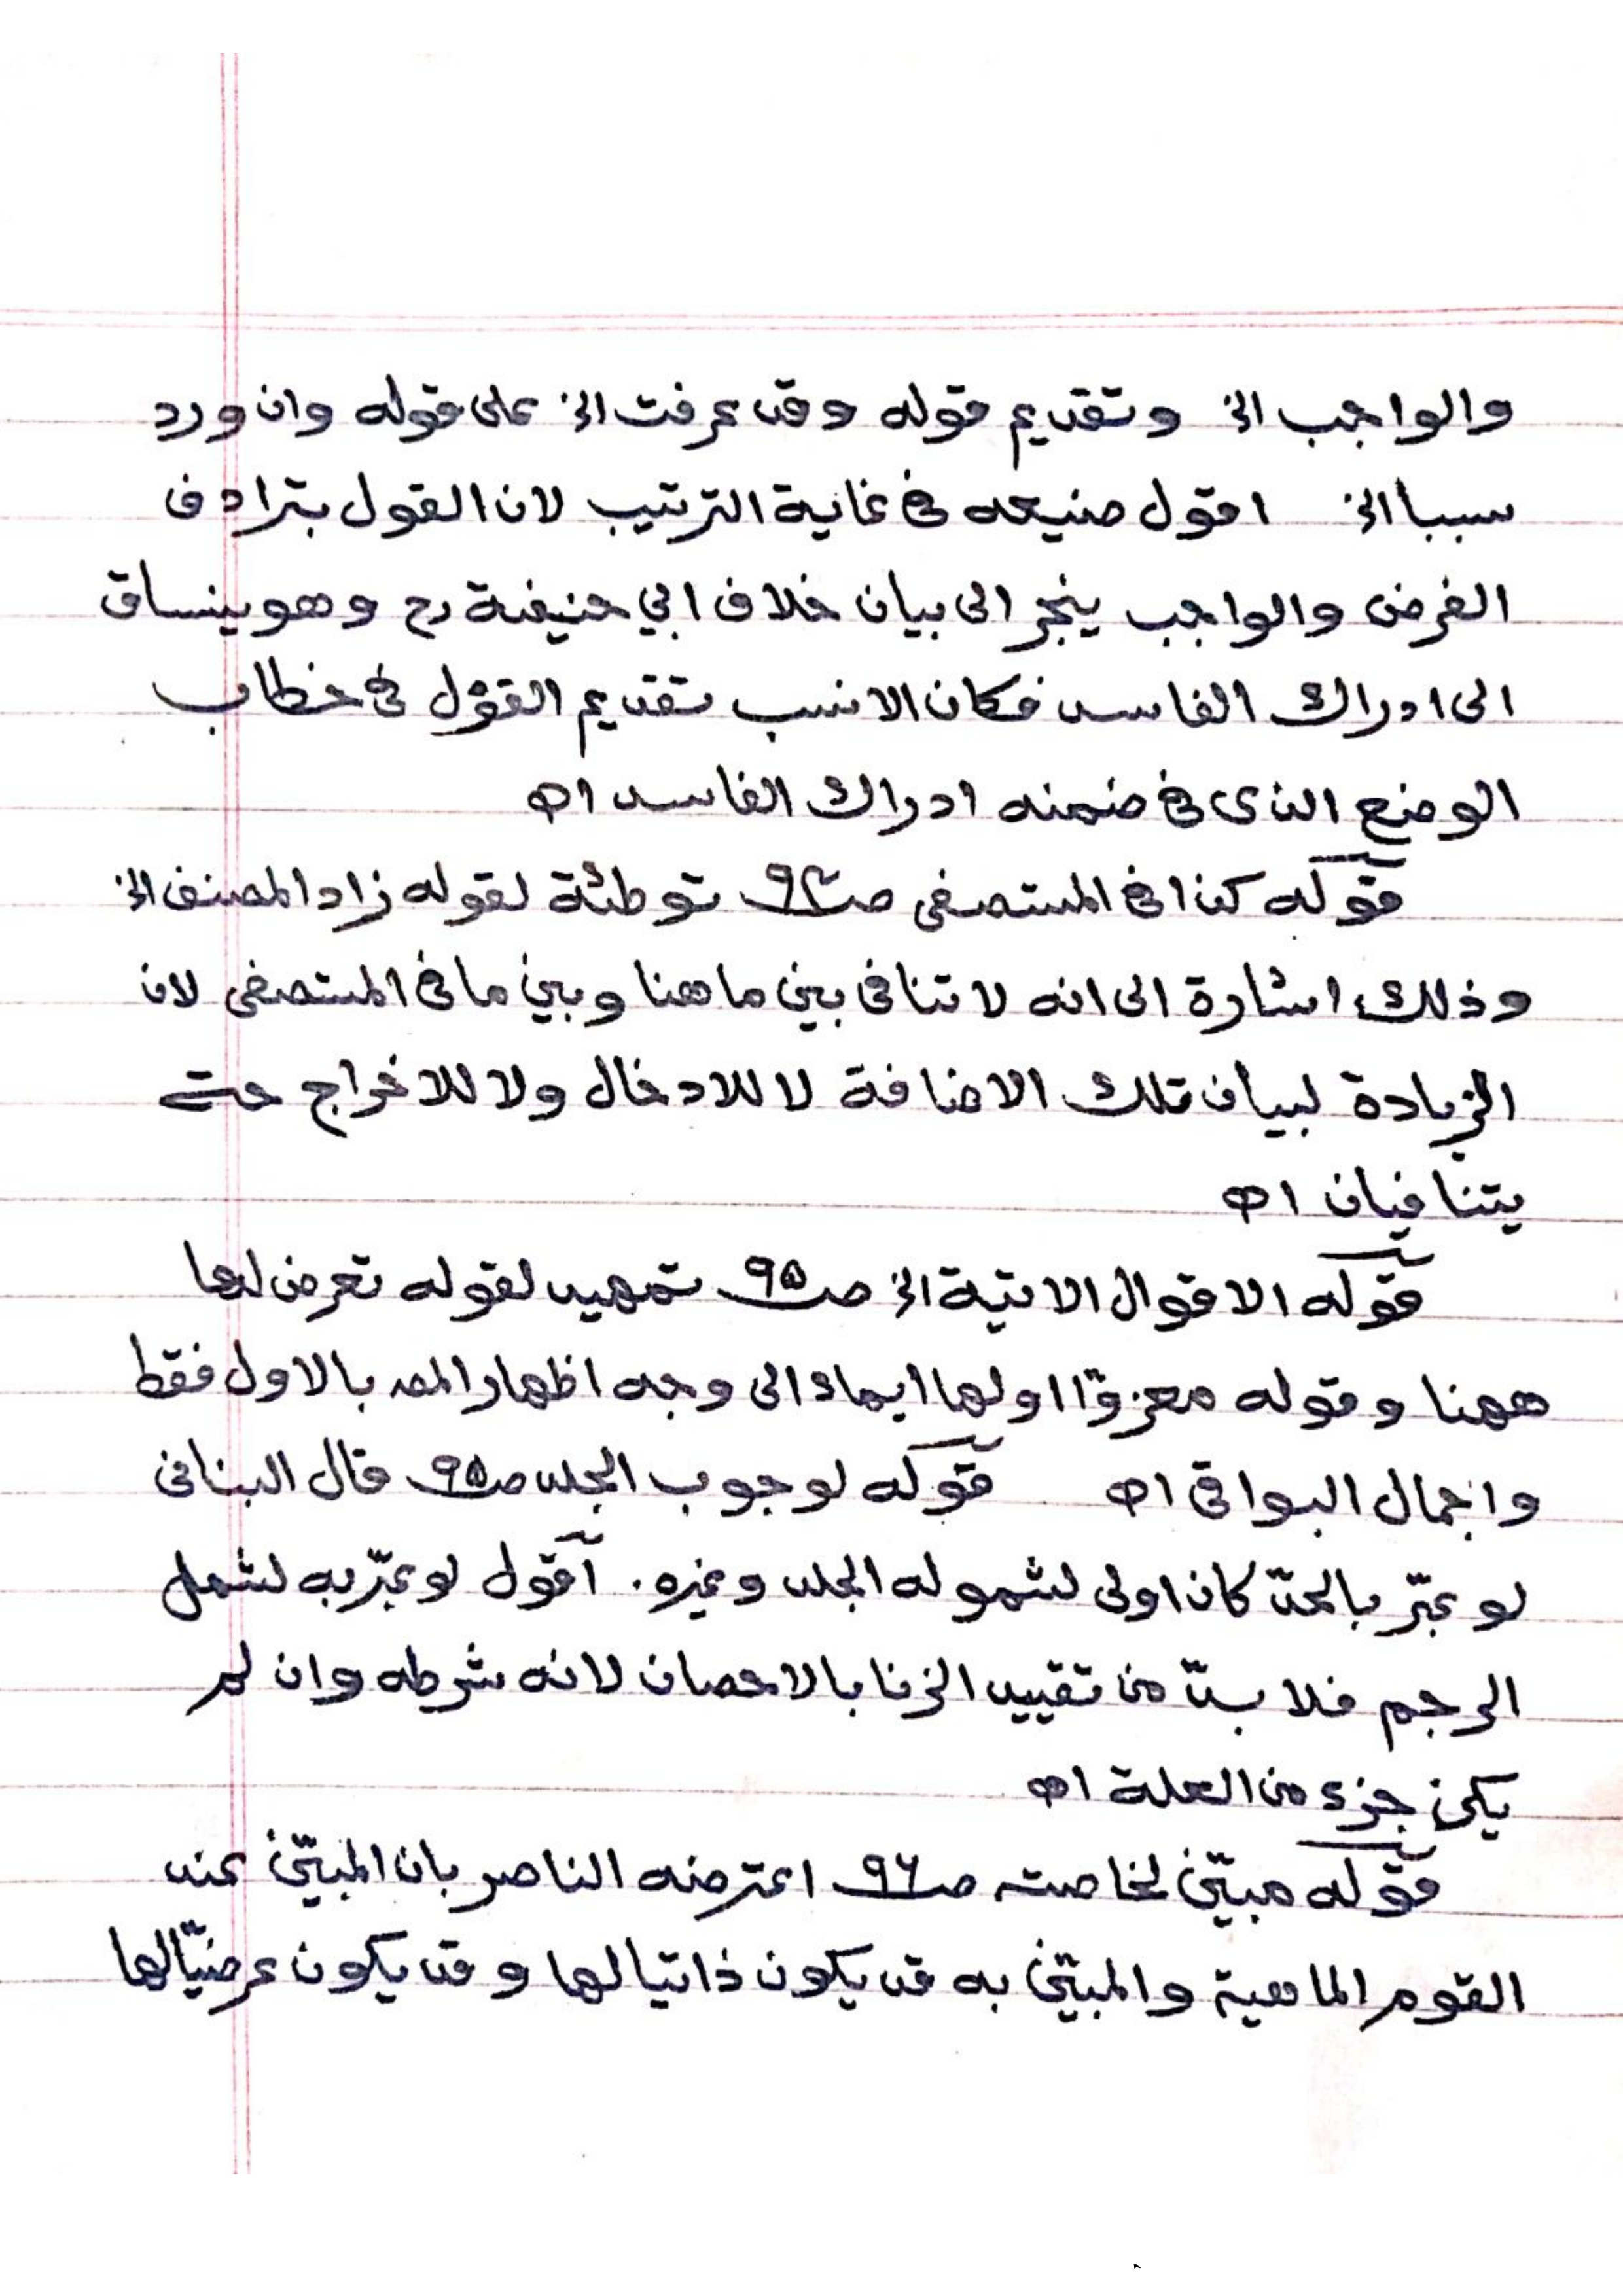 والواجب الخ وتقديم قوله وقد عرفت الخ على قوله وان ورد
سببا الخ اقول صنيعه في غاية الترتيب لان القول بترادف
الفرض والواجب ينجر الى بيان خلاف ابي حنيفة رح وهو ينساق
الى ادراك الفاسد فكان الانسب تقديم القول في خطاب
الوضع الذى في ضمنه ادراك الفاسد اھ
قوله كذا في المستصفى صـ٩٤ توطئة لقوله زاد المصنف الخ
وذلك اشارة الى انه لا تنافى بين ما هنا وبين ما فى المستصفى لان
الزيادة لبيان تلك الاضافة لا للادخال ولا للاخراج حتى
يتنافيان اھ
قوله الاقوال الاتية الخ صـ٩٥ تمهيد لقوله تعرض لها
ههنا وقوله معزوّا اولها ايماء الى وجه اظهار المص بالاول فقط
واجمال البواقى اھ قوله لوجوب الجلد صـ٩٥ قال البنانى
لو عبّر بالحدّ كان اولى لشموله الجلد وغيره. أقول لو عبّر به لشمل
الرجم فلا بدّ من تقييد الزنا بالاحصان لانه شرطه وان لم
يكن جزء من العلة اھ
قوله مبيّن لخاصته صـ٩٦ اعترضه الناصر بان المبيّن عند
القوم الماهية والمبيّن به قد يكون ذاتيا لها وقد يكون عرضيّا لها